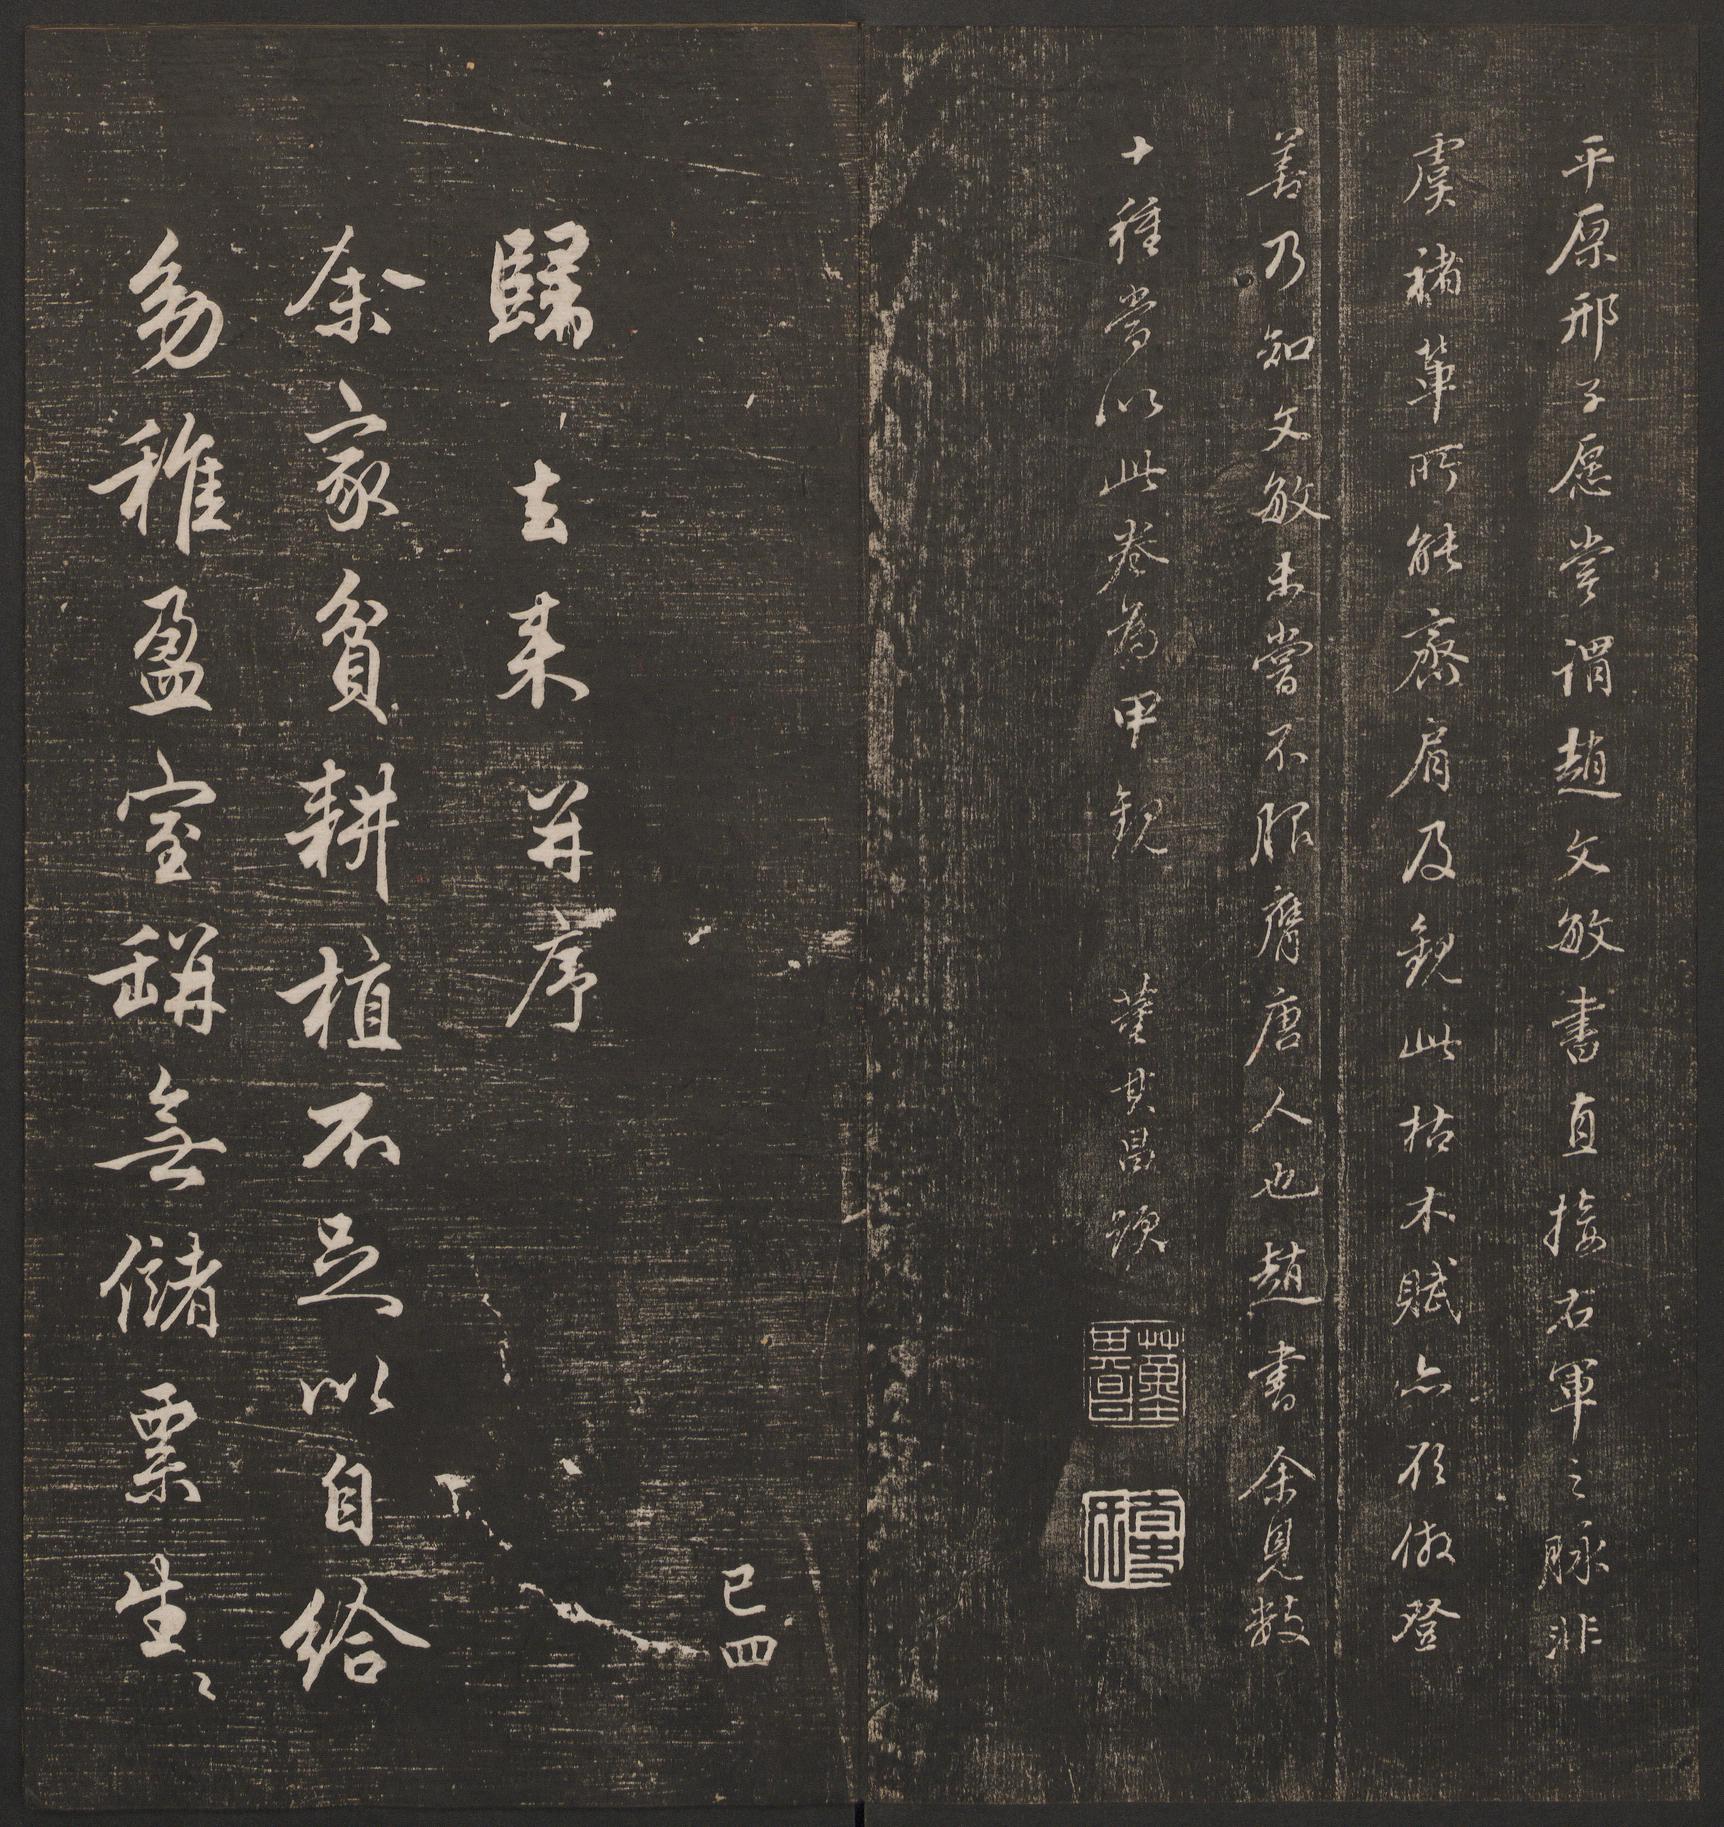 平原邢子愿嘗謂趙文敏書直接右軍之脉非
虞褚輩所能齊肩及觀此枯木賦亦欲倣登
善乃知文敏未嘗不服膺唐人也趙書余見數
十種當以此卷為甲觀 董其昌題
董其昌
巳四
歸去來并序
余家貧耕植不足以自給
幼稚盈室缾無儲粟生〻